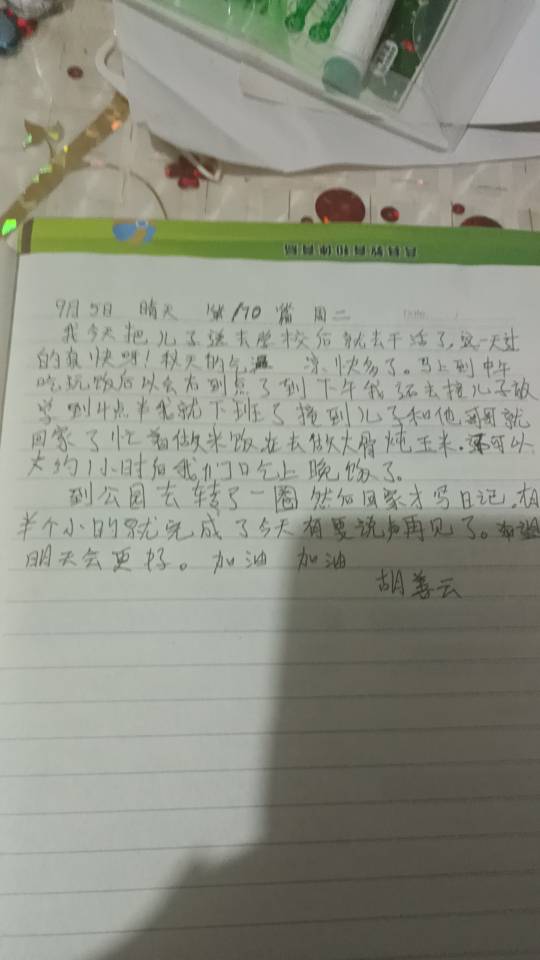 9月5日 晴天 第170篇 周二
我今天把儿子送去学校后就去干活了,这一天过
的真快呀!秋天的气温 凉快多了。马上到中午
吃玩饭后以会有到点了到下午我还去接儿子放
学到4点半我就下班了接到儿子和他哥哥就
回家了忙着做米饭在去做大骨炖玉米.还可以
大约1小时后我们口乞上晚饭了。
到公园去转了一圈然后回家才写日记,有
半个小时就完成了今天有要说声再见了。
明天会更好。加油 加油
胡善云